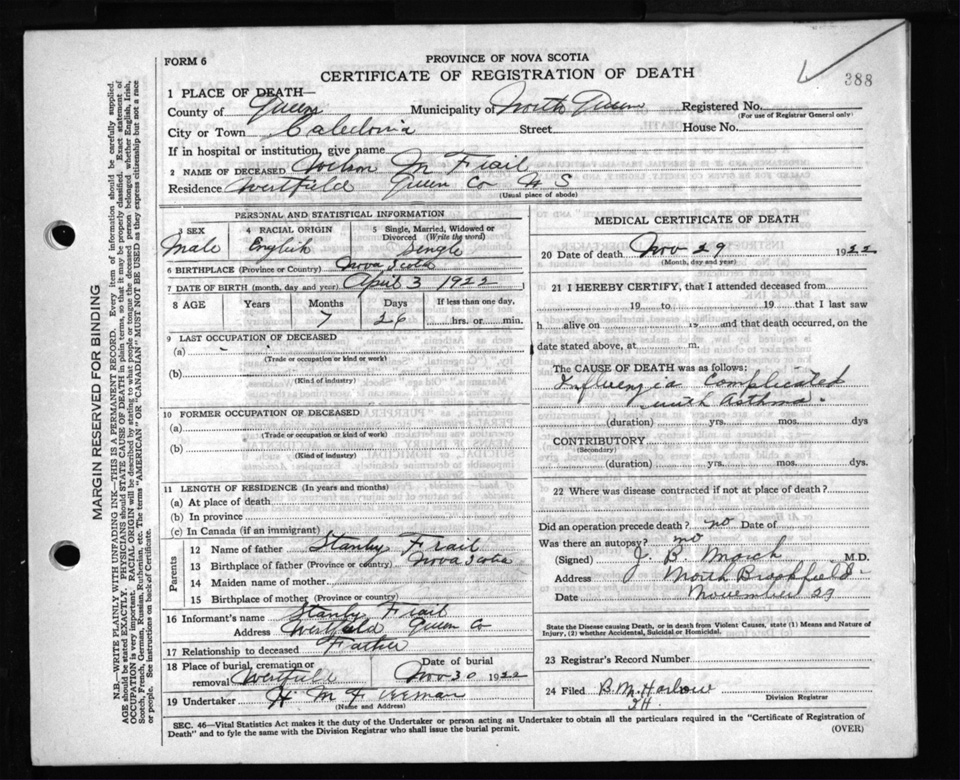 388
FORM 6
PROVINCE OF NOVA SCOTIA
CERTIFICATE OF REGISTRATION OF DEATH
1 PLACE OF DEATH—
County of Queens Municipality of North Queen Registered No.
(For use of Registrar General only)
City or Town Caledonia Street House No.
If in hospital or institution, give name
2 NAME OF DECEASED M Frail
Residence Westfield Queen Co N S
(Usual place of abode)
PERSONAL AND STATISTICAL INFORMATION
3 SEX
Male
4 RACIAL ORIGIN
English
5 Single, Married, Widowed or Divorced (Write the word)
Single
6 BIRTHPLACE (Province or Country) Nova Scotia
7 DATE OF BIRTH (month, day, and year) April 3 1922
8 AGE Years Months Days If less than one day,
7 26 hrs. or min.
9 LAST OCCUPATION OF DECEASED
(a)
(Trade or occupation or kind of work)
(b)
(Kind of industry)
10 FORMER OCCUPATION OF DECEASED
(a)
(Trade or occupation or kind of work)
(b)
(Kind of industry)
11 LENGTH OF RESIDENCE (In years and months)
(a) At place of death
(b) In province
(c) In Canada (if an immigrant)
Parents
12 Name of father Stanley Frail
13 Birthplace of father (Province or country) Nova Scotia
14 Maiden name of mother
15 Birthplace of mother (Province or country)
16 Informant's name Stanley Frail
Address Westfield Queen Co
17 Relationship to deceased Father
18 Place of burial, cremation or removal Westfield
Date of burial
Nov 30 1922
19 Undertaker H M Freeman
(Name and Address)
MEDICAL CERTIFICATE OF DEATH
20 Date of death Nov 29 1922
(Month, day and year)
21 I HEREBY CERTIFY, that I attended deceased from
19 to 19 that I last saw
h alive on 19 and that death occurred, on the
date stated above, at m.
The CAUSE OF DEATH was as follows:
Influenzia Complicated
with Asthma.
(duration) yrs. mos. dys
CONTRIBUTORY
(Secondary)
(duration) yrs. mos. dys.
22 Where was disease contracted if not at place of death?
Did an operation precede death? no Date of
Was there an autopsy? no
(Signed) J. B M.D.
Address North Brookfield
Date November 29
State the Disease causing Death, or in death from Violent Causes, state (1) Means and Nature of Injury, (2) whether Accidental, Suicidal or Homicidal.
23 Registrar's Record Number
24 Filed B. M. Harlow
Division Registrar
SEC. 46—Vital Statistics Act makes it the duty of the Undertaker or person acting as Undertaker to obtain all the particulars required in the "Certificate of Registration of
Death" and to fyle the same with the Division Registrar who shall issue the burial permit.
(OVER)
MARGIN RESERVED FOR BINDING
N.B.—WRITE PLAINLY WITH UNFADING INK—THIS IS A PERMANENT RECORD. Every item of information should be carefully supplied.
AGE should be stated EXACTLY. PHYSICIANS should STATE CAUSE OF DEATH in plain terms, so that it may be properly classified. Exact statement of
OCCUPATION is very important. RACIAL ORIGIN will be described by stating to what people or tongue the deceased person belonged whether English, Irish,
Scotch, French, German, Russian, Ruthenian, etc. The terms "AMERICAN" OR "CANADIAN" MUST NOT BE USED as they express citizenship but not a race
or people. See instructions on back of Certificate.